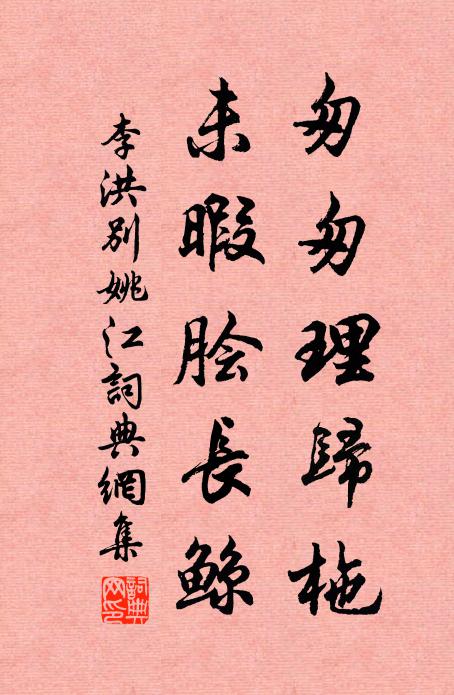 匆匆理歸柂
未暇脍長鲸
李洪别姚江詞典網集
詞典
网印